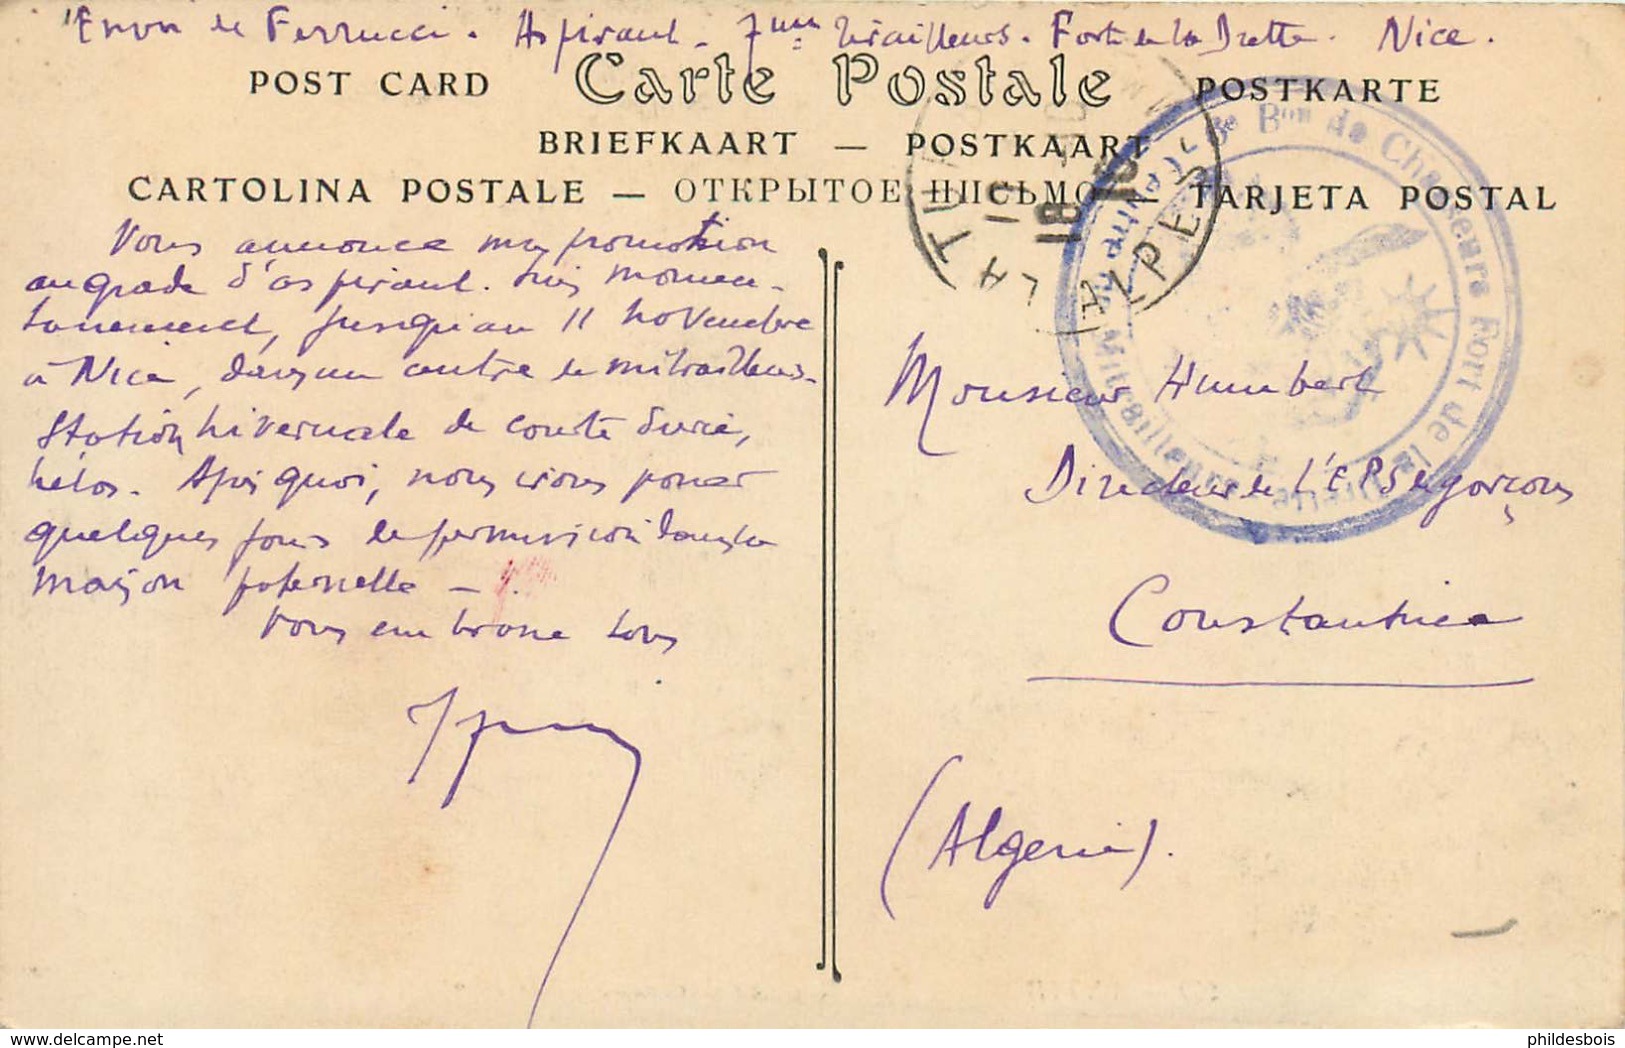 Envoi de Ferrucci. Aspirant - 7ème Tirailleurs. Fort de la Drette. Nice.
POST CARD Carte Postale POSTKARTE
BRIEFKAART — POSTKAART
CARTOLINA POSTALE — ОТКРЫТОЕ ПИСЬМО — TARJETA POSTAL
Vous annonce ma promotion
au grade d'aspirant. Suis momen-
tanément, jusqu'au 11 novembre
à Nice, dans un centre de mitrailleurs.
Station hivernale de courte durée,
hélas. Après quoi, nous irons passer
quelques jours de permission dans la
maison paternelle —
Vous embrasse tous
Monsieur Humbert
Directeur de L'EPS de garçons
Constantine
(Algérie).
LA TURBIE
ALPES
18
Bon de Chasseurs Fort de la Drette
Mitrailleurs
delcampe.net
phildesbois